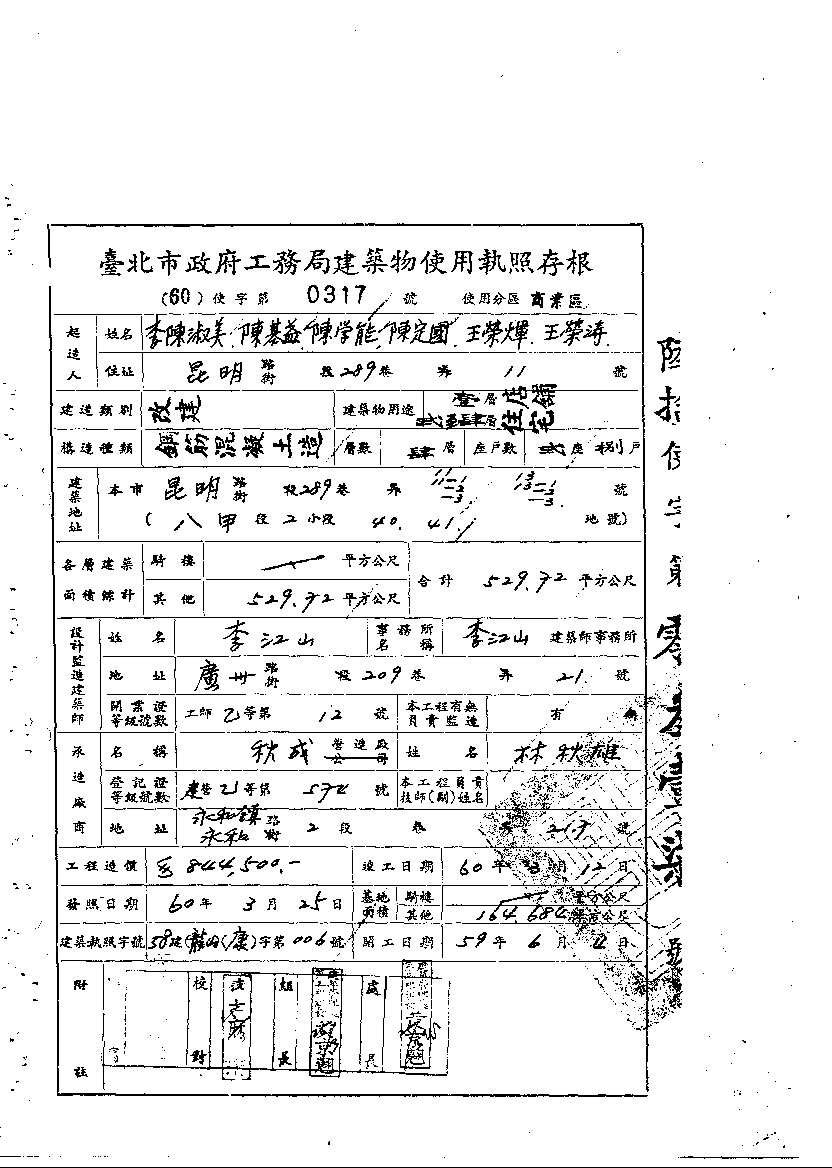 臺北市政府工務局建築物使用執照存根
(60)使字第 0317 號 使用分區 商業區
起造人 姓名 李陳淑美 陳基益 陳学能 陳定國 王榮輝 王榮濤
住址 昆明 路街 段 289 巷 弄 11 號
建造類別 改建 建築物用途 壹層店舖 貳至肆層住宅
構造種類 鋼筋混凝土造 層數 肆層 座戶數 貳座捌戶
建築地址 本市 昆明 路街 段 289 巷 弄 號
(八甲 段 2 小段 40. 41. 地號)
各層建築面積總計 騎樓 平方公尺 合計 529.72 平方公尺
其他 529.72 平方公尺
設計監造建築師 姓名 李江山 事務所名稱 李江山 建築師事務所
地址 廣州 路街 段 209 巷 弄 21 號
開業證等級號數 工師 乙等第 12 號 本工程有無負責監造 有
承造廠商 名稱 秋成 營造廠公司 姓名 林秋雄
登記證等級號數 營乙等第 574 號 本工程負責技師(副)姓名
地址 永和鎮 永和 路街 2 段 巷 號
工程造價 844,500.- 竣工日期 60 年 月 12 日
發照日期 60 年 3 月 25 日 基地面積 騎樓 平方公尺
其他 164.684 平方公尺
建築執照字號 58建( )(康)字第 006 號 開工日期 59 年 6 月 日
附註 校對 組長 處長
陸拾使字第零